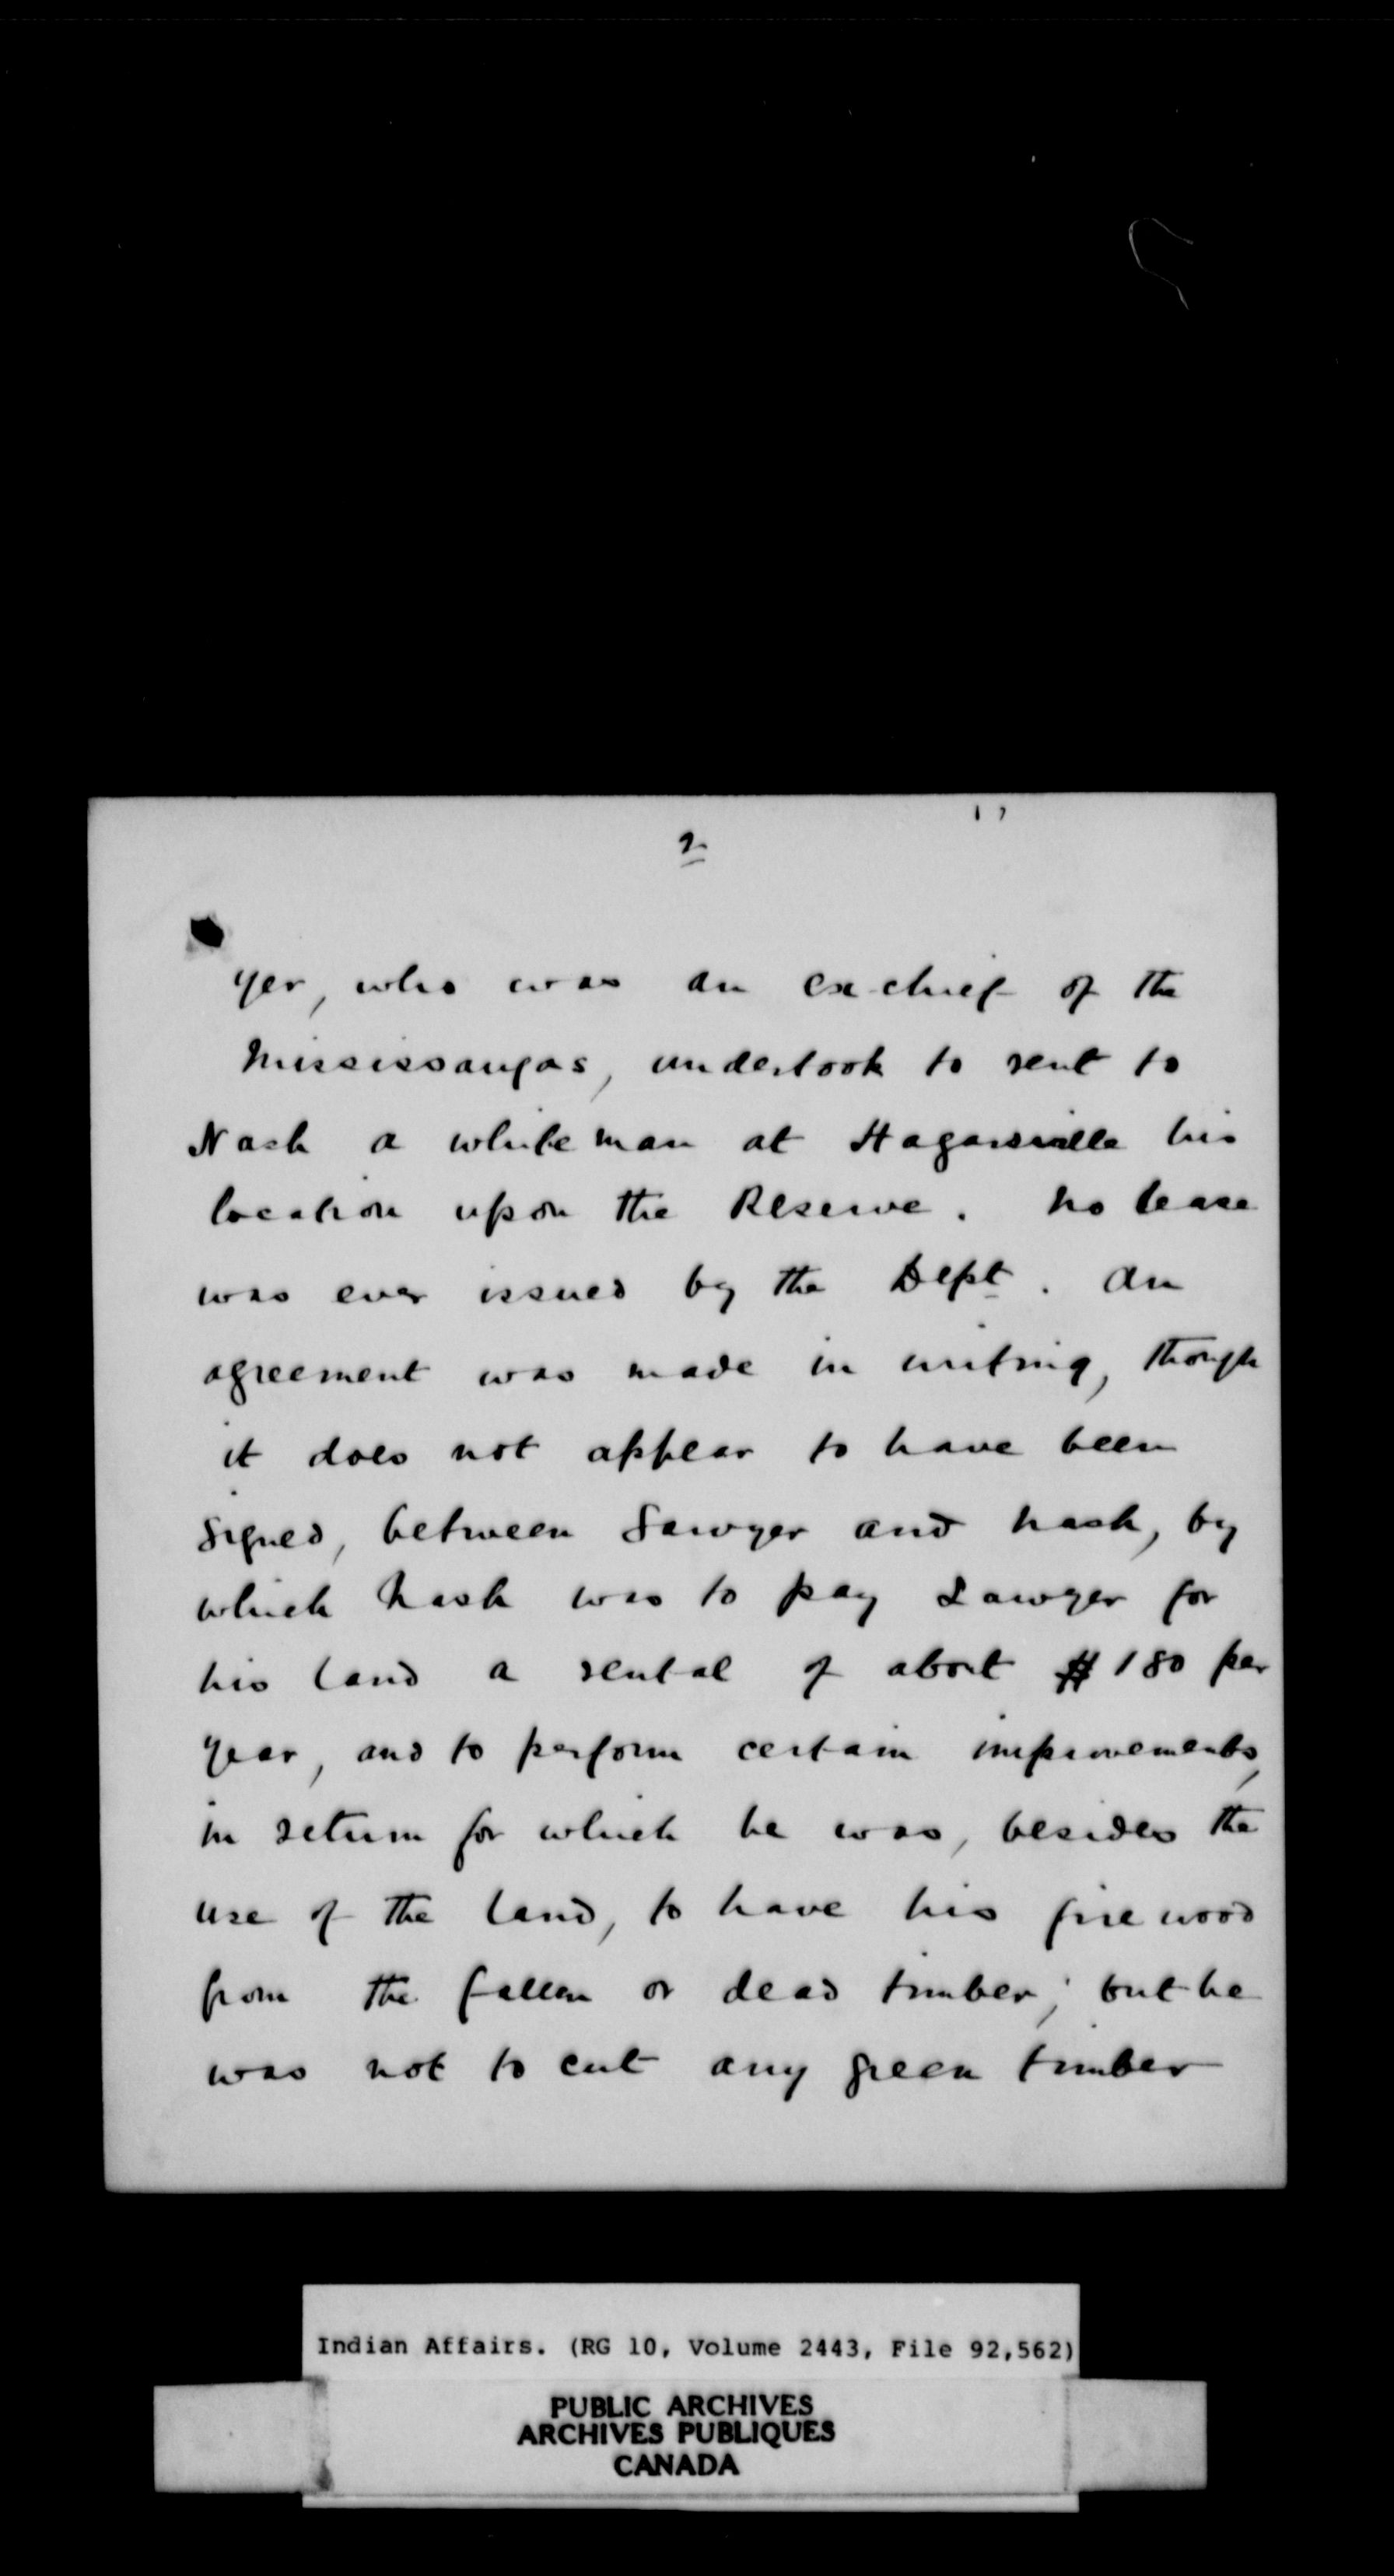 2
yer, who was an ex-chief of the
Mississaugas, undertook to rent to
Nash a white man at Hagarsville his
location upon the Reserve. No lease
was ever issued by the Dept. An
agreement was made in writing, though
it does not appear to have been
signed, between Sawyer and Nash, by
which Nash was to pay Sawyer for
his land a rental of about $180 per
year, and to perform certain improvements,
in return for which he was, besides the
use of the land, to have his fire wood
from the fallen or dead timber; but he
was not to cut any green timber
Indian Affairs. (RG 10, Volume 2443, File 92,562)
PUBLIC ARCHIVES
ARCHIVES PUBLIQUES
CANADA